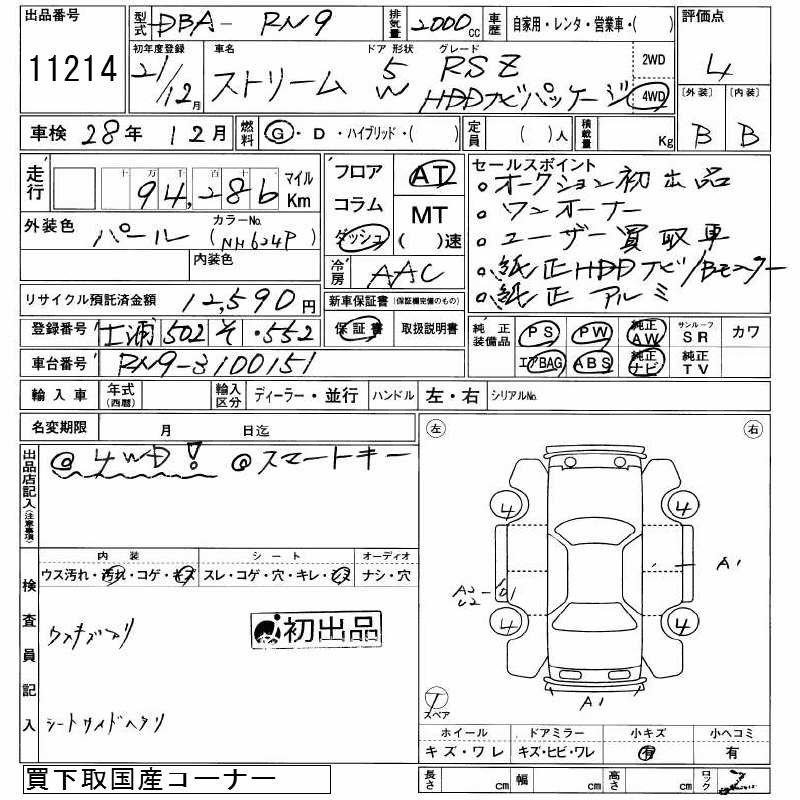 出品番号
11214
型式 DBA- RN9
排気量 2000 cc
車歴 自家用・レンタ・営業車・( )
評価点
4
初年度登録
21/12月
車名
ストリーム
ドア 形状
5
W
グレード
RSZ
HDDナビパッケージ
2WD
4WD
〔外装〕 〔内装〕
B B
車検 28年 12月
燃料 G・D・ハイブリッド・( )
定員 ( )人
積載量 Kg
走行
十 万 千 百 十
94,286 マイル Km
フロア
コラム
ダッシュ
AT
MT
( )速
セールスポイント
。オークション初出品
。ワンオーナー
。ユーザー買取車
。純正HDDナビ/Bモニター
。純正アルミ
外装色 パール
カラーNo.
(NH624P)
内装色
冷房 AAC
リサイクル預託済金額 12,590円
新車保証書 (保証欄完備のもの)
保証書 取扱説明書
登録番号 土浦 502 そ ・552
純正装備品
PS PW 純正AW サンルーフSR カワ
エアBAG ABS 純正ナビ 純正TV
車台番号 RN9-3100151
輸入車 年式(西暦) 輸入区分 ディーラー・並行 ハンドル 左・右 シリアルNo.
名変期限 月 日迄
左 右
出品店記入(注意事項)
◎4WD! ◎スマートキー
検査員記入
内装 シート オーディオ
ウス汚れ・汚れ・コゲ・キズ スレ・コゲ・穴・キレ・シミ ナシ・穴
ウスキズアリ
初出品
シートサイドヘタリ
4 4
A1
A2
U2
4 4
A1
T
スペア
ホイール ドアミラー 小キズ 小ヘコミ
キズ・ワレ キズ・ヒビ・ワレ 有 有
買下取国産コーナー
長さ cm 幅 cm 高さ cm ロック